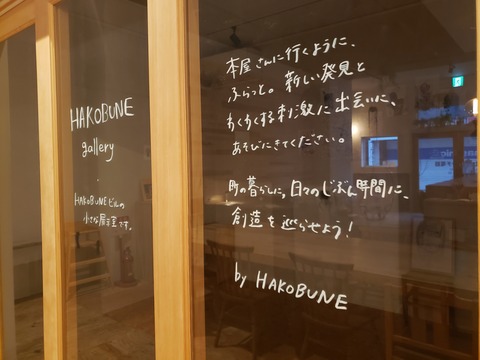 HAKOBUNE
gallery
・
HAKOBUNEビルの
小さな展示室です。
本屋さんに行くように、
ふらっと。新しい発見と
わくわくする刺激に出会いに、
あそびにきてください。
町の暮らしに、日々のじぶん時間に、
創造を巡らせよう!
by HAKOBUNE